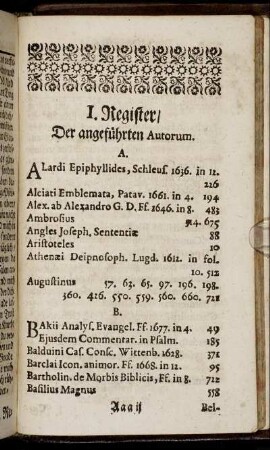 I. Register/
Der angeführten Autorum.
A.
ALardi Epiphyllides, Schleus. 1636. in 12.
226
Alciati Emblemata, Patav. 1661. in 4. 194
Alex. ab Alexandro G. D. Ff. 1646. in 8. 483
Ambrosius 675
Angles Joseph, Sententiæ 88
Aristoteles 10
Athenæi Deipnosoph. Lugd. 1612. in fol.
10. 512
Augustinus 57. 63. 65. 97. 196. 198.
360. 416. 550. 559. 560. 660. 721
B.
BAkii Analys. Evangel. Ff. 1677. in 4. 49
Ejusdem Commentar. in Psalm. 185
Balduini Cas. Consc. Wittenb. 1628. 371
Barclai Icon. animor. Ff. 1668. in 12. 95
Bartholin. de Morbis Biblicis, Ff. in 8. 722
Basilius Magnus 558
Aaa ij Bel-